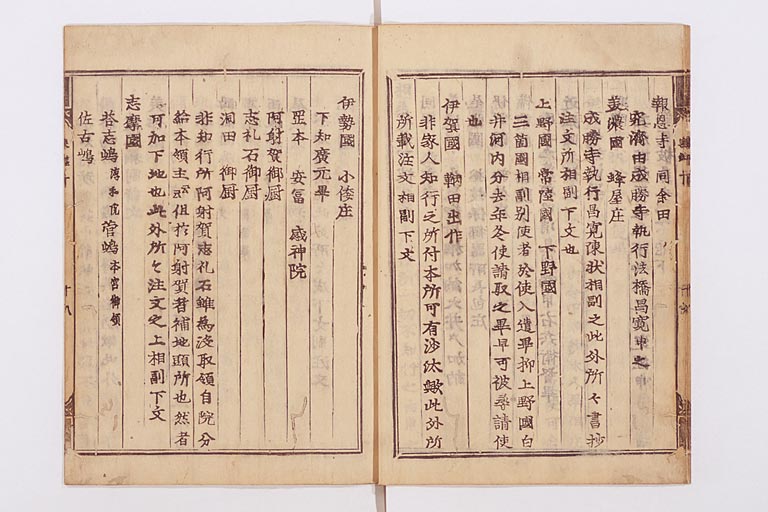 報恩寺 同余田
美濃國 蜂屋庄
究濟由成勝寺執行法橋昌寛申之
成勝寺執行昌寛陳状相副之此外所々書抄
注文所相副下文也
上野國 常陸國 下野國
三箇國相副別使者於使入遣畢抑上野國白
井河内分去年冬使請取之畢早可被尋請使
也
伊賀國 鞆田出作
非家人知行之所付本所可有沙汰歟此外所
所載注文相副下文
伊勢國 小俊庄
下知廣元畢
豆本 安冨 感神院
阿射賀御厨
志礼石御厨
洞田 御厨
非知行所阿射賀志礼石雖為没取領自院分
給本領主 但於阿射賀者補地頭所也然者
可加下地也此外所々注文之上相副下文
志摩國
荅志嶋 菅嶋 本宮御領
佐古嶋
十八